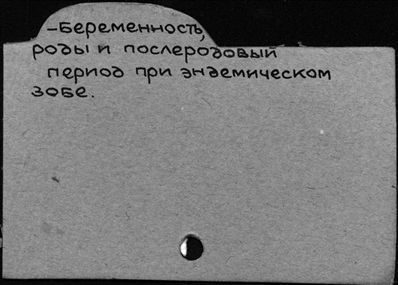 -Беременность,
роды и послеродовый
период при эндемическом
зобе.